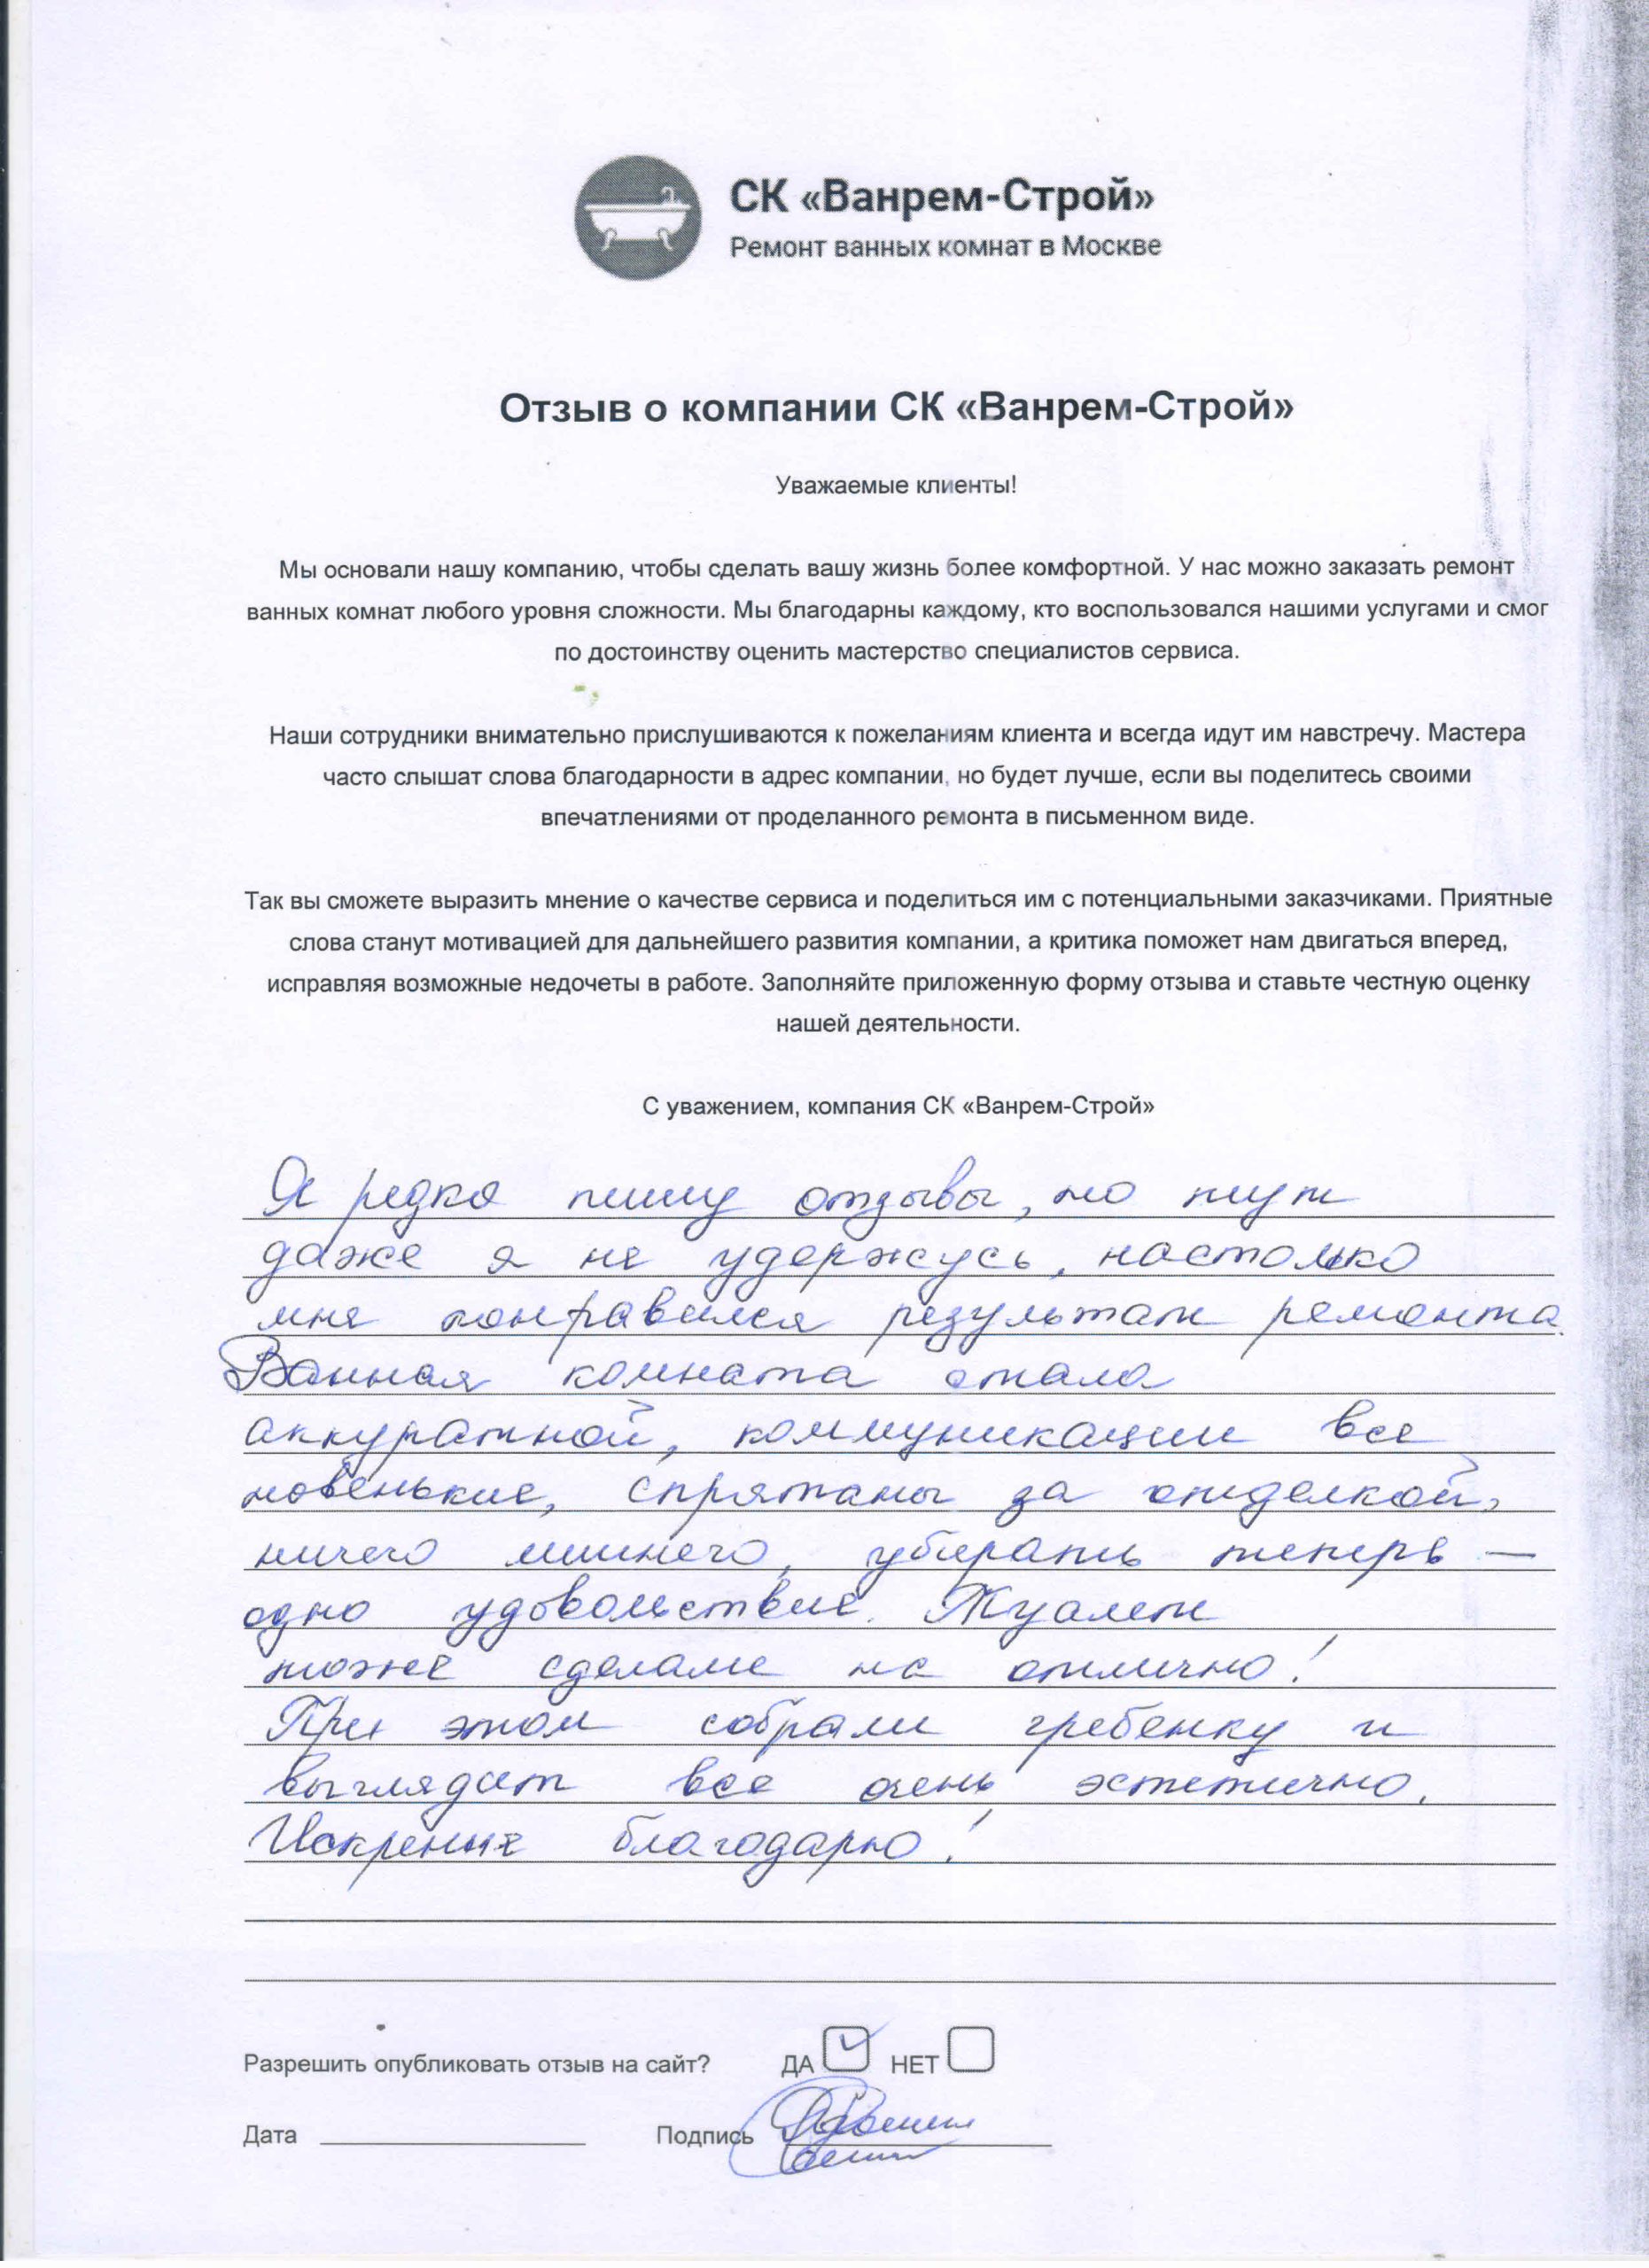 СК «Ванрем-Строй»
Ремонт ванных комнат в Москве
Отзыв о компании СК «Ванрем-Строй»
Уважаемые клиенты!
Мы основали нашу компанию, чтобы сделать вашу жизнь более комфортной. У нас можно заказать ремонт
ванных комнат любого уровня сложности. Мы благодарны каждому, кто воспользовался нашими услугами и смог
по достоинству оценить мастерство специалистов сервиса.
Наши сотрудники внимательно прислушиваются к пожеланиям клиента и всегда идут им навстречу. Мастера
часто слышат слова благодарности в адрес компании, но будет лучше, если вы поделитесь своими
впечатлениями от проделанного ремонта в письменном виде.
Так вы сможете выразить мнение о качестве сервиса и поделиться им с потенциальными заказчиками. Приятные
слова станут мотивацией для дальнейшего развития компании, а критика поможет нам двигаться вперед,
исправляя возможные недочеты в работе. Заполняйте приложенную форму отзыва и ставьте честную оценку
нашей деятельности.
С уважением, компания СК «Ванрем-Строй»
Я редко пишу отзывы, но тут
даже я не удержусь, настолько
мне понравился результат ремонта.
Ванная комната стала
аккуратной, коммуникации все
новенькие, спрятаны за отделкой,
ничего лишнего, убирать теперь —
одно удовольствие. Туалет
тоже сделали на отлично!
При этом собрали гребенку и
выглядит все очень эстетично.
Искрение благодарю!
Разрешить опубликовать отзыв на сайт? ДА НЕТ
Дата Подпись